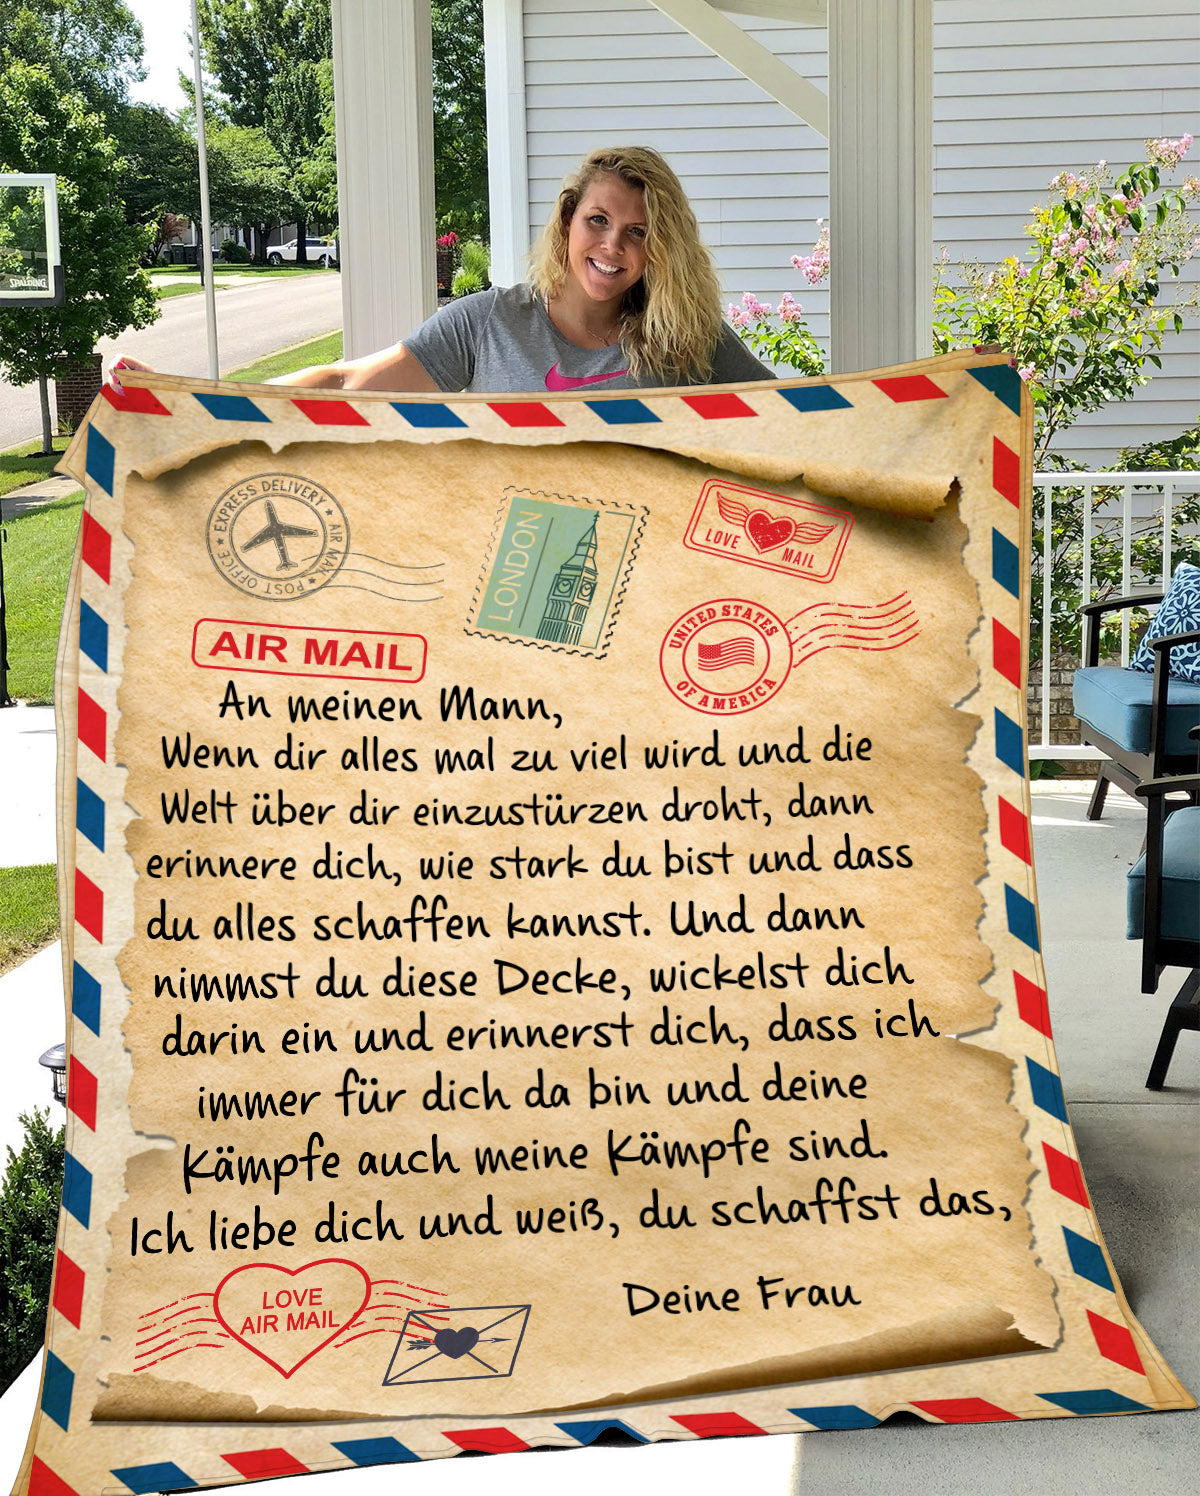 SPALDING
EXPRESS DELIVERY ★ AIR MAIL ★ POST OFFICE ★
LONDON
LOVE MAIL
UNITED STATES
OF AMERICA
AIR MAIL
An meinen Mann,
Wenn dir alles mal zu viel wird und die
Welt über dir einzustürzen droht, dann
erinnere dich, wie stark du bist und dass
du alles schaffen kannst. Und dann
nimmst du diese Decke, wickelst dich
darin ein und erinnerst dich, dass ich
immer für dich da bin und deine
Kämpfe auch meine Kämpfe sind.
Ich liebe dich und weiß, du schaffst das,
Deine Frau
LOVE
AIR MAIL